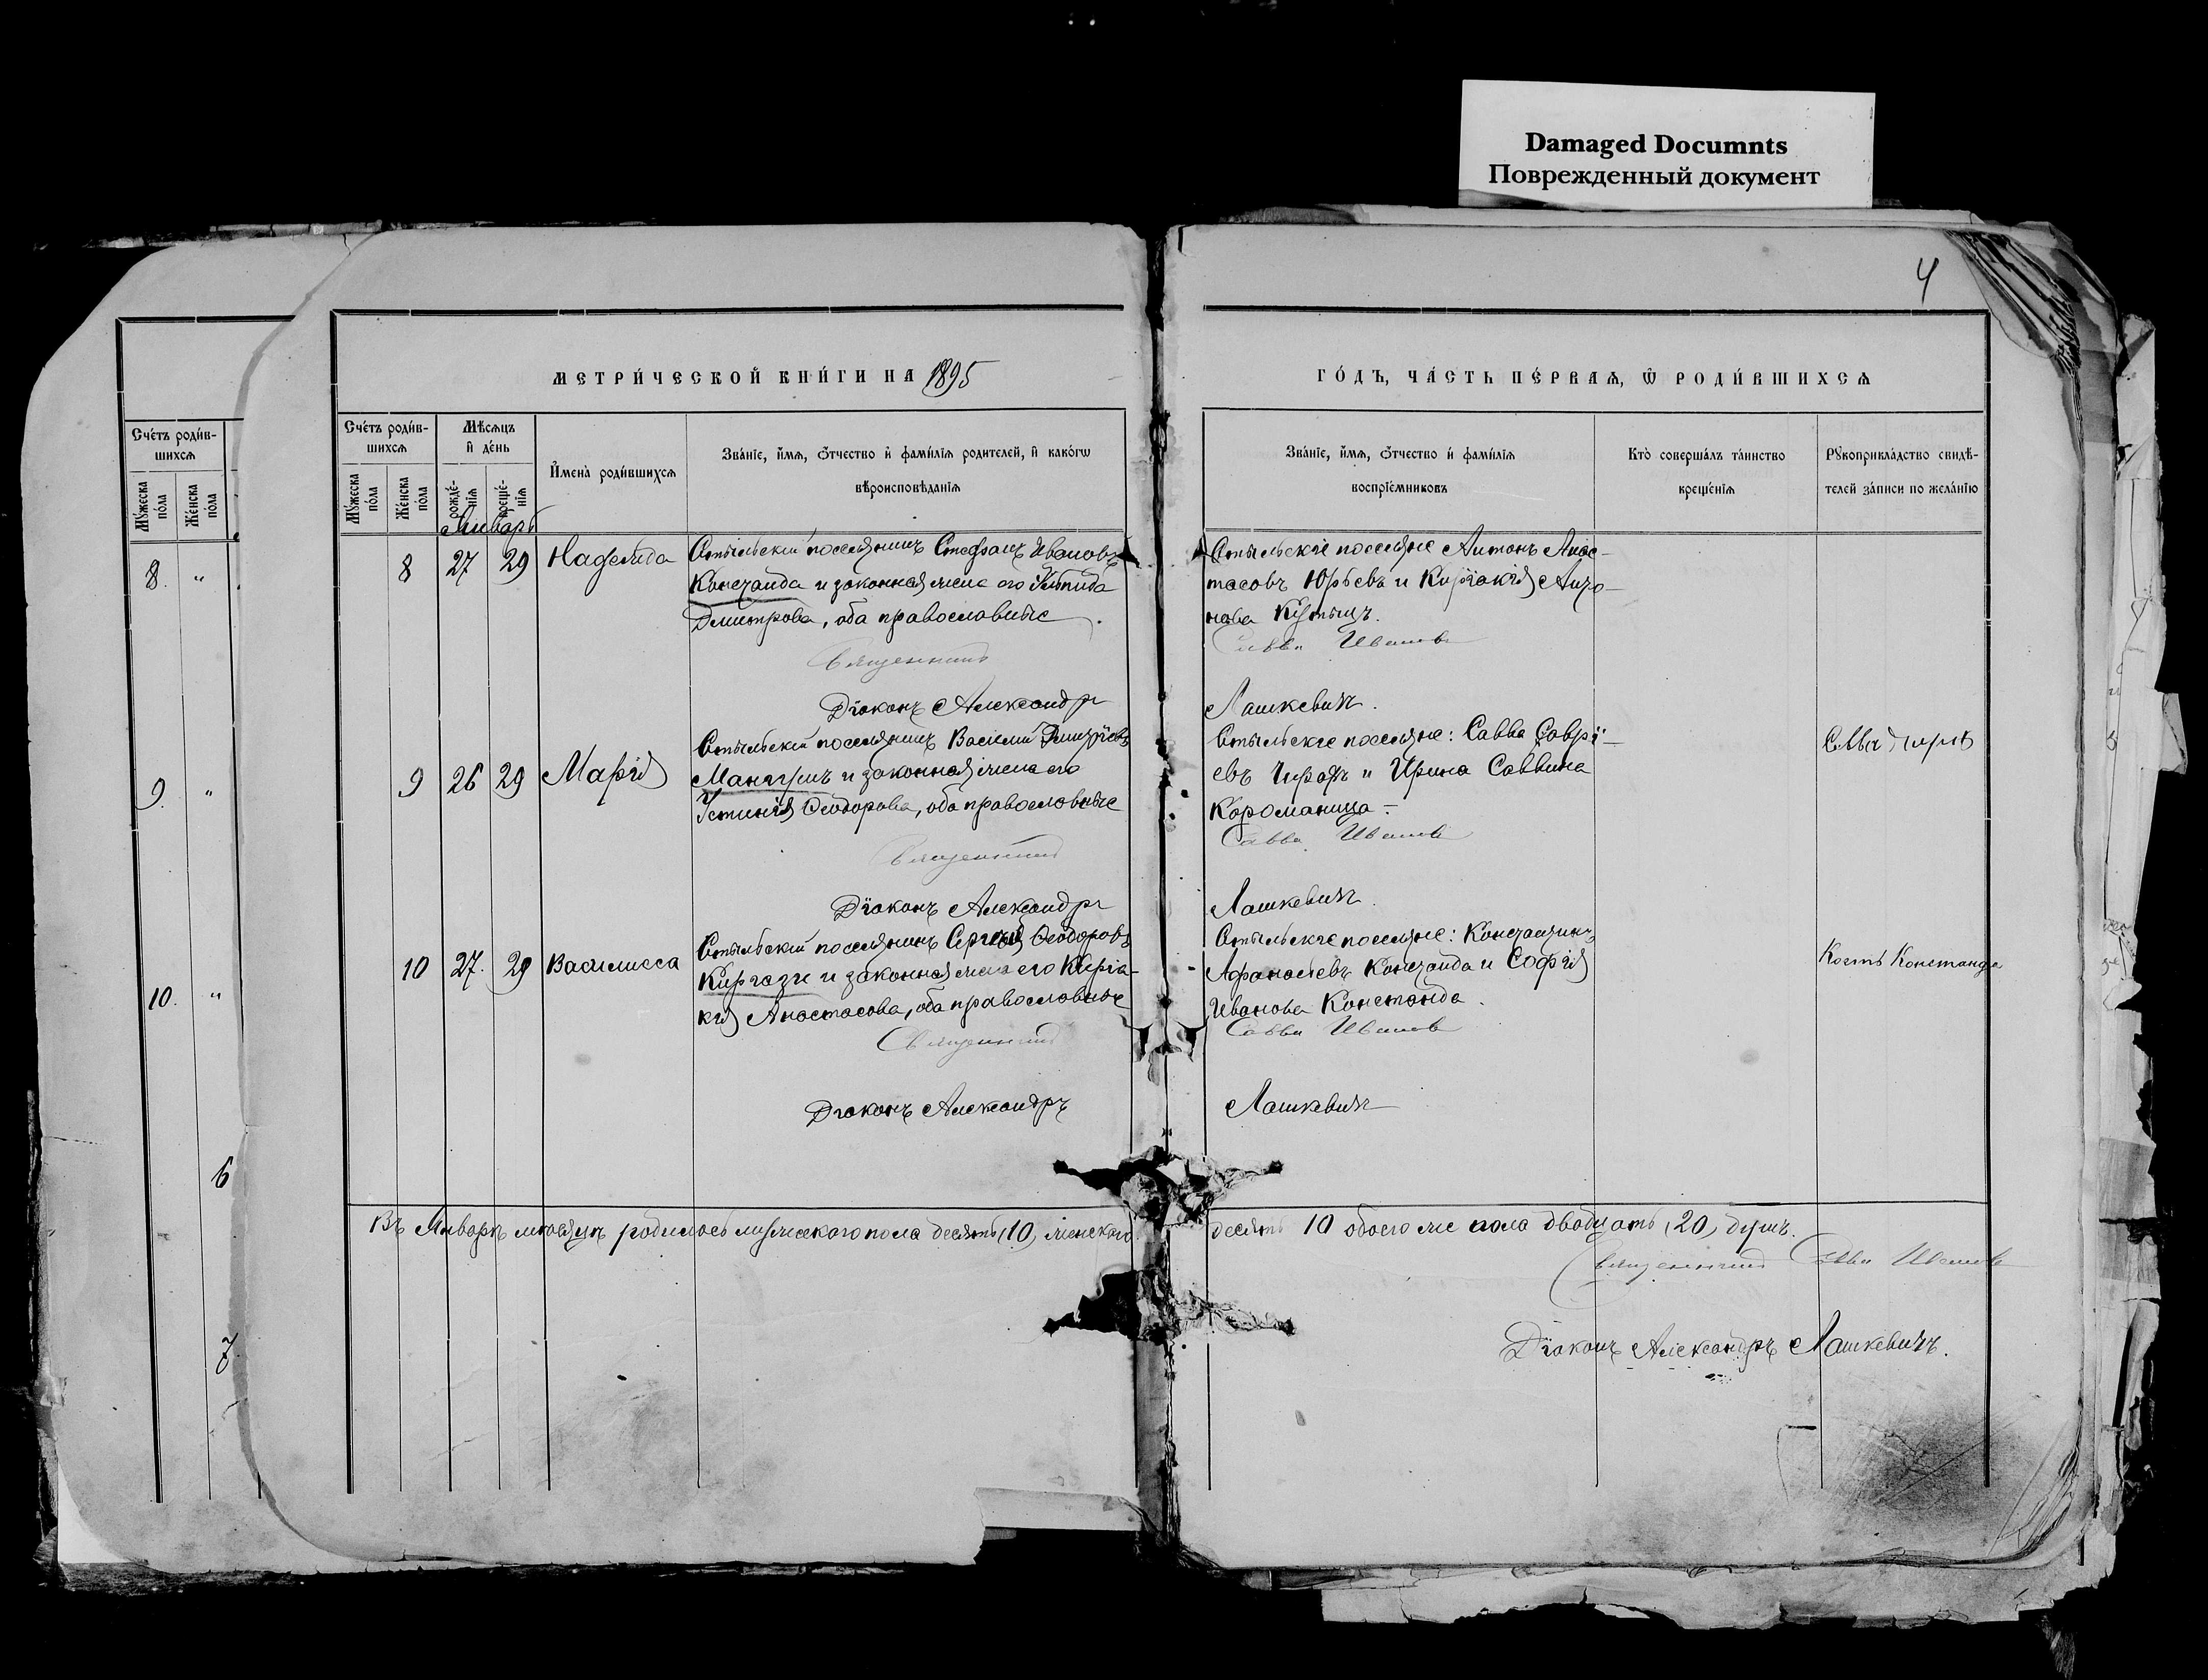 Damaged Documnts
Поврежденный документ
4
МЕТРИ́ЧЕСКОЙ КНИ́ГИ НА 1895
ГО́ДЪ, ЧА́СТЬ ПЕ́РВАѦ, Ѿ РОДИ́ВШИХСѦ
Сче́тъ роди́в-
шихсѧ
Му́жеска по́ла
Же́нска по́ла
8. "
9. "
10. "
6
7.
Сче́тъ роди́в-
шихсѧ
Му́жеска по́ла
Же́нска по́ла
Мѣ́сѧцъ
и҆ де́нь
рожде́-
нїѧ
креще́-
нїѧ
И҆мена̀ роди́вшихсѧ
Зва́нїе, и҆́мѧ, ѻ҆́тчество и҆ фами́лїѧ родителей, и҆ како́гѡ
вѣроисповѣ́данїѧ
Зва́нїе, и҆́мѧ, ѻ҆́тчество и҆ фами́лїѧ
воспрїе́мниковъ
Кто̀ соверша́лъ та́инство
креще́нїѧ
Рꙋкоприкла́дство свидѣ́-
телей за́писи по жела́нїю
Январь
8 27 29 Надежда Стыльскій поселянинъ Стефанъ Ивановъ
Констанда и законная жена его
Димитрова, оба православные.
Стыльскіе поселяне Антонъ Анас-
тасовъ Юрьевъ и Киріакія
нова
Священникъ Савва Иванов
Діаконъ Александръ Лашкевичъ.
9 26 29 Марія Стыльскій поселянинъ Василий Димитріевъ
Манагушъ и законная жена его
Устинія Ѳеодорова, оба православные
Стыльскіе поселяне: Савва Саврі-
евъ Чирахъ и Ирина Саввина
Короманица -
Савва
Священникъ Савва Иванов
Діаконъ Александръ Лашкевичъ.
10 27. 29 Василисса Стыльскій поселянинъ Сергій Ѳеодоровъ
Киргази и законная жена его Киріа-
кія Анастасова, оба православные
Стыльскіе поселяне: Константинъ
Афанасіевъ Констанда и Софія
Иванова Констанда.
Кость Констанда
Священникъ Савва Иванов
Діаконъ Александръ Лашкевичъ
Въ Январѣ мѣсяцѣ родилось мужескаго пола десять (10) женскаго
десять 10 обоего же пола двадцать (20) душъ.
Священникъ Савва Иванов
Діаконъ Александръ Лашкевичъ.